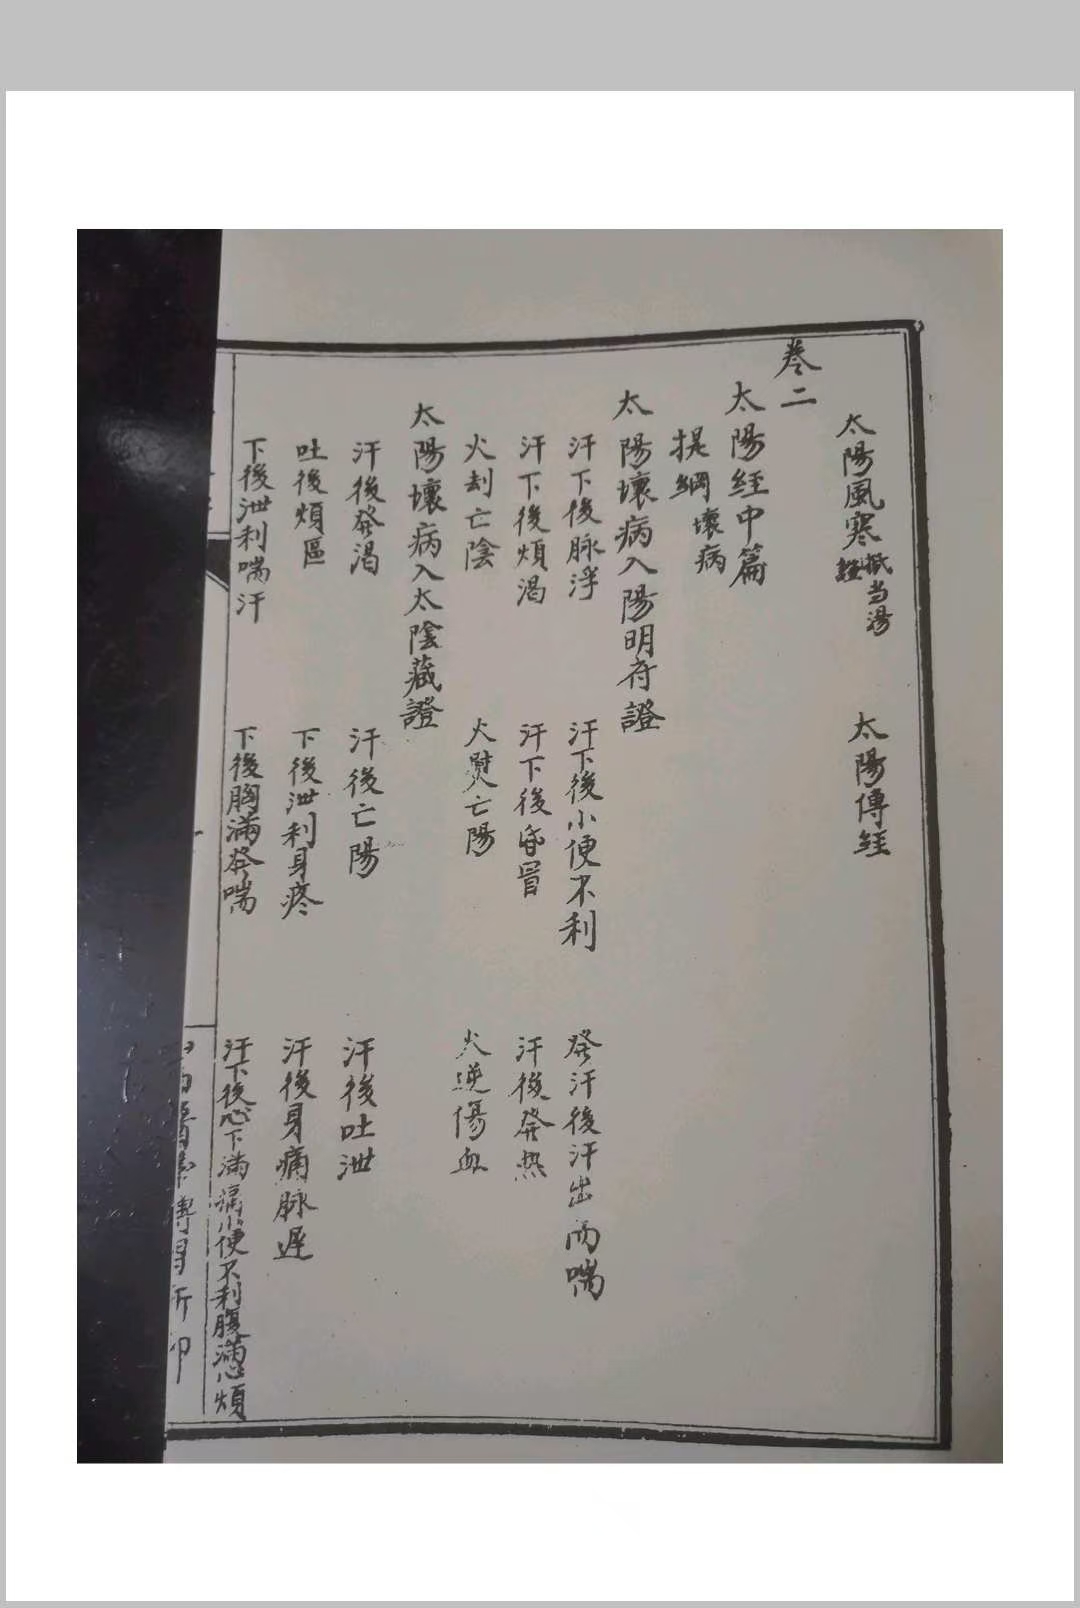 太陽風寒抵当湯證
太陽傳経
卷二
太陽経中篇
提綱壞病
太陽壞病入陽明府證
汗下後脉浮
汗下後小便不利
發汗後汗出而喘
汗下後煩渴
汗下後昏冒
汗後發热
火刦亡陰
火熨亡陽
火逆傷血
太陽壞病入太陰藏證
汗後發渴
汗後亡陽
汗後吐泄
吐後煩
下後泄利身疼
汗後身痛脉遲
下後泄利喘汗
下後胸滿發喘
汗下後心下滿痛小便不利腹滿心煩